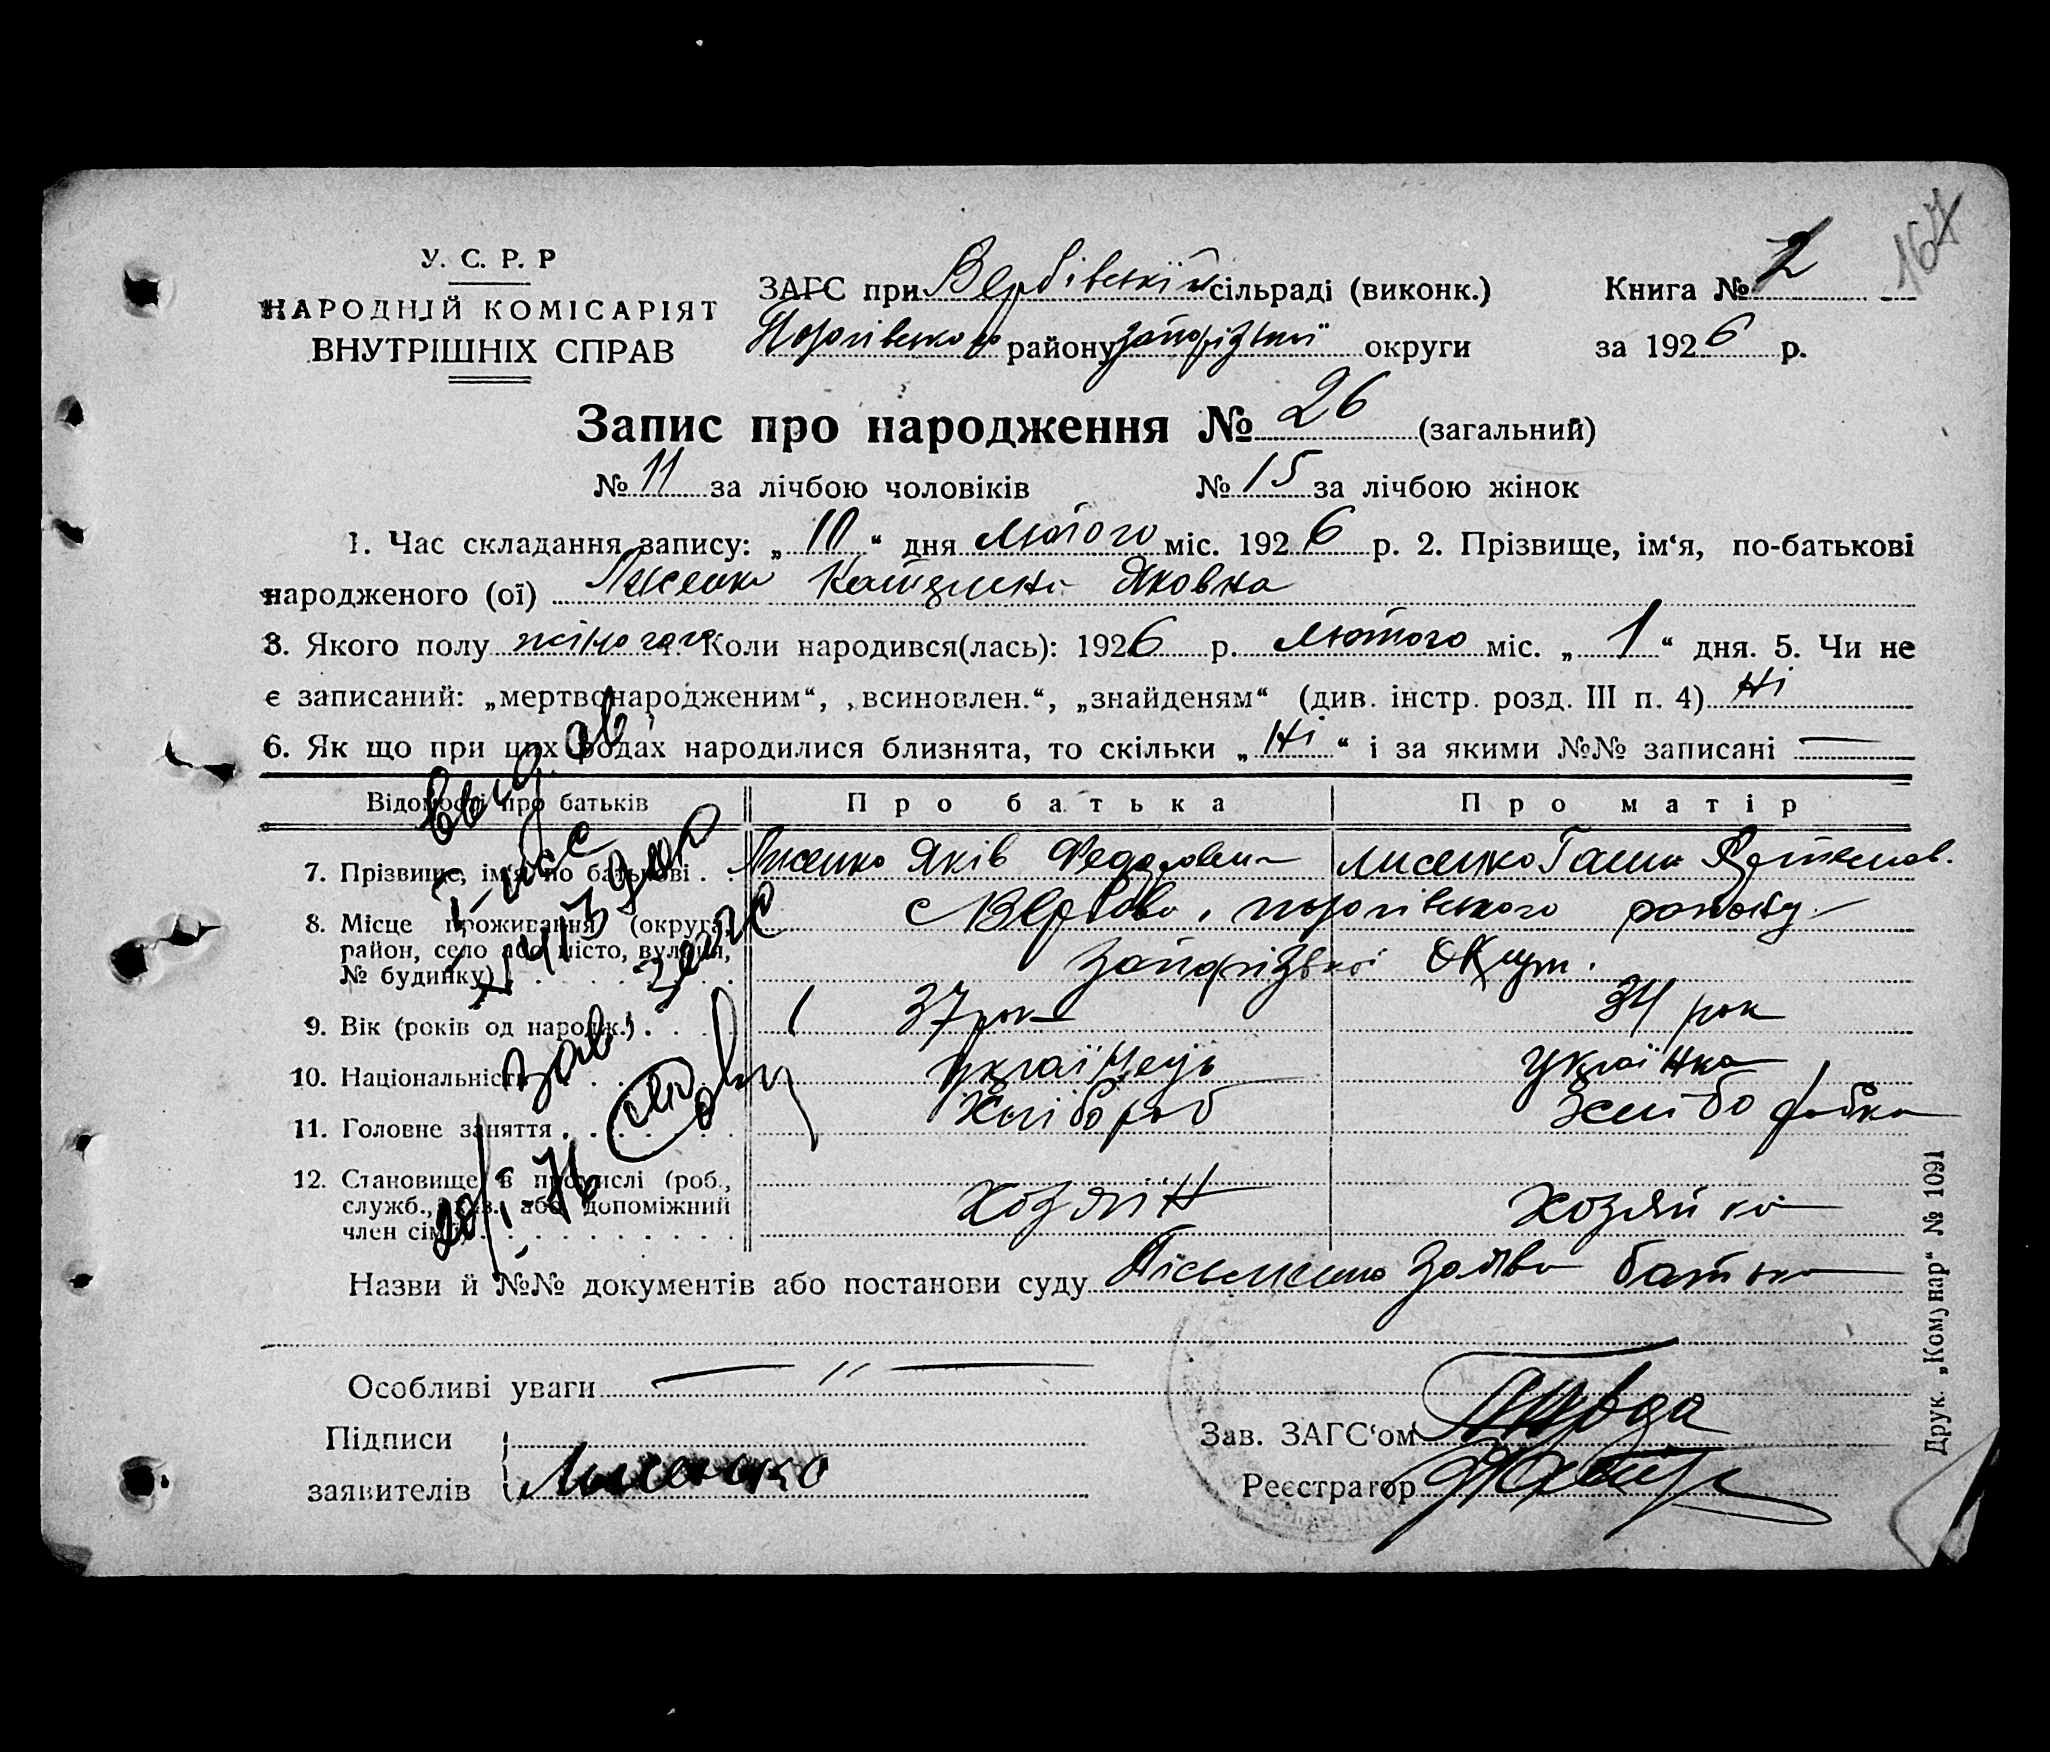 167
У. С. Р. Р
НАРОДНІЙ КОМІСАРІЯТ
ВНУТРІШНІХ СПРАВ
ЗАГС при Вербівській сільраді (виконк.) Книга № 2
Пологівського району Запорізької округи за 1926 р.
Запис про народження № 26 (загальний)
№ 11 за лічбою чоловіків № 15 за лічбою жінок
1. Час складання запису: „10“ дня лютого міс. 1926 р. 2. Прізвище, ім‘я, по-батькові
народженого (ої) Лисенко Катерина Яковна
3. Якого полу жіночого Коли народився(лась): 1926 р. лютого міс. „1“ дня. 5. Чи не
є записаний: „мертвонародженим“, „всиновлен.“, „знайденям“ (див. інстр. розд. III п. 4) Ні
6. Як що при цих родах народилися близнята, то скільки „Ні“ і за якими №№ записані —
Відомості про батьків Про батька Про матір
7. Прізвище, ім‘я, по батькові . . Лисенко Яків Федорович Лисенко Ганна
8. Місце проживання (округа, с Вербова, пологівського району
район, село або місто, вулиця, Запорізької Округи.
№ будинку)
9. Вік (років од народж.) . . . . 37 рок 34 рок
10. Національність . . . . українець українка
11. Головне заняття . . . . . хлібороб хліборобка
12. Становище в промислі (роб., хозяїн хозяйка
служб., хаз. або допоміжний
член сім‘ї) . . . . . . . . . .
Назви й №№ документів або постанови суду Письменна заява батька
Особливі уваги — " —
Підписи
заявителів Лисенко
Зав. ЗАГС‘ом
Реєстратор
Друк. „Комунар“ № 1091